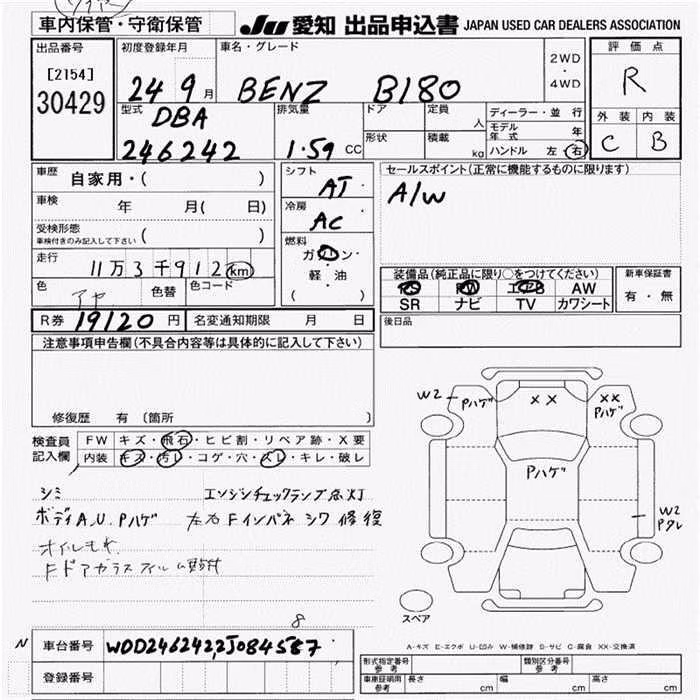 車内保管・守衛保管
JU 愛知 出品申込書 JAPAN USED CAR DEALERS ASSOCIATION
出品番号
[2154]
30429
初度登録年月
24 9月
車名・グレード
BENZ B180
2WD
・
4WD
評価点
R
外装 内装
C B
型式
DBA
246242
排気量
1.59 CC
ドア
定員
人
形状
積載
kg
ディーラー・並行
モデル年式 年
ハンドル 左・右
車歴
自家用・( )
車検
年 月( 日)
受検形態
車検付きのみ記入して下さい ( )
走行
11万3千912km
色
色替
色コード
シフト
AT
冷房
AC
燃料
ガソリン・
軽・油
( )
セールスポイント(正常に機能するものに限ります)
A/W
装備品(純正品に限り○をつけてください)
PS PW エアB AW
SR ナビ TV カワシート
新車保証書
有・無
R券 19120円 名変通知期限 月 日
後日品
注意事項申告欄(不具合内容等は具体的に記入して下さい)
修復歴 有 (箇所 )
検査員
記入欄
FW キズ・飛石・ヒビ割・リペア跡・X要
内装 キズ・汚レ・コゲ・穴・スレ・キレ・破レ
シミ エンジンチェックランプ点灯
ボディA.U.Pハゲ 左右Fインパネ シワ 修復
オイルもれ
Fドアガラスフィルム貼付
W2 Pハゲ XX XX Pハゲ
Pハゲ
W2
Pクレ
スペア
A-キズ E-エクボ U-凹み W-補修跡 S-サビ C-腐食 XX-交換済
8
N 車台番号 WDD2462422J084587
登録番号
形式指定番号
参考
類別区分番号
参考
車庫証明用
参考
長さ cm 幅 cm 高さ cm